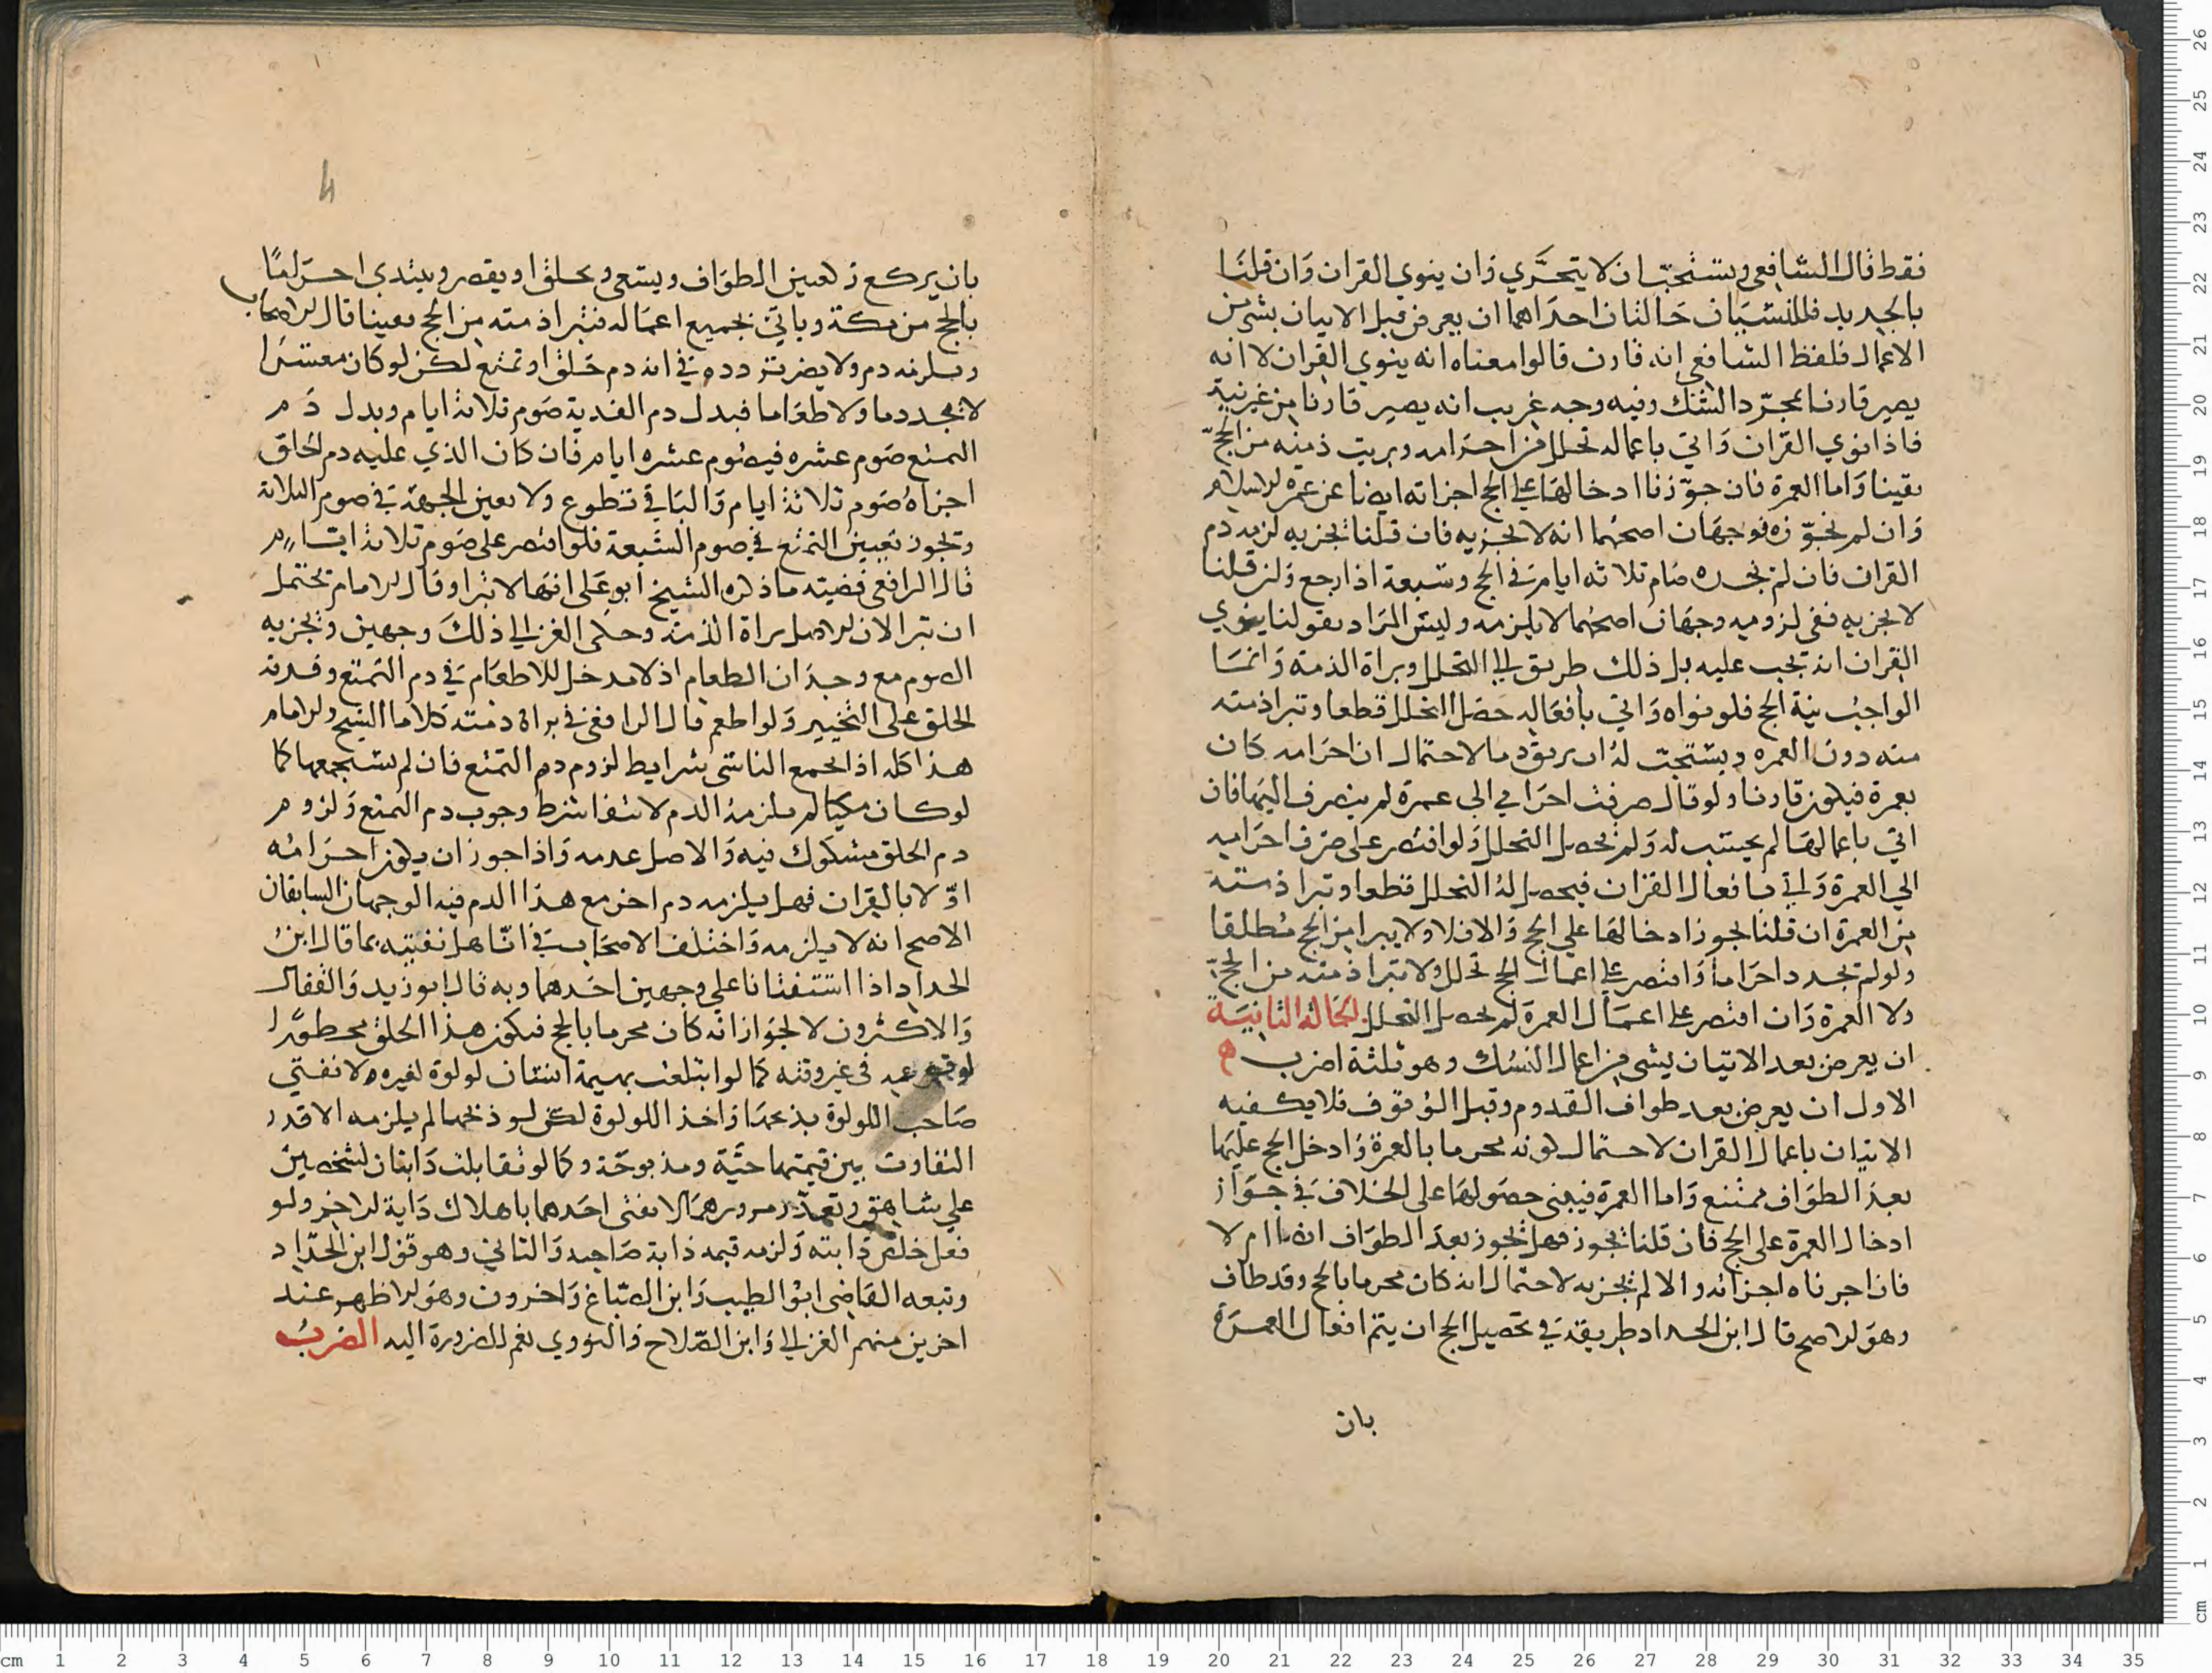 فقط قال الشافعي ويستحب ان لا يتحري وان ينوي القران وان قلنا
بالجديد فللنسيان حالتان احداهما ان يعرض قبل الاتيان بشي من
الاعمال فلفظ الشافعي انه قارن قالوا معناه انه ينوي القران لا انه
يصير قارنا بمجرد الشك وفيه وجه غريب انه يصير قارنا من غير نية
فاذا نوي القران واتي باعماله تحلل من احرامه وبريت ذمته من الحج
يقينا واما العمرة فان جوزنا ادخالها علي الحج اجزاته ايضا عن عمرة الاسلام
وان لم نجوزه فوجهان اصحهما انه لا تجزيه فان قلنا تجزيه لزمه دم
القران فان لم يجده صام ثلاثه ايام في الحج وسبعة اذا رجع وان قلنا
لا يجزيه ففي لزوميه وجهان اصحهما لا يلزمه وليس المراد بقولنا ينوي
القران انه يجب عليه بل ذلك طريق الي التحلل وبراة الذمة وانما
الواجب نية الحج فلو نواه واتي بافعاله حصل التحلل قطعا وتبرا ذمته
منه دون العمره ويستحب له ان يريق دما لاحتمال ان احرامه كان
بعمرة فيكون قارنا ولو قال صرفت احرامي الي عمرة لم ينصرف اليها فان
اتي باعمالها لم يحتسب له ولم يحصل التحلل ولو اقتصر علي صرف احراميه
الي العمرة واتي بافعال القران فيحصل له التحلل قطعا وتبرا ذمته
من العمرة ان قلنا يجوز ادخالها علي الحج والا فلا ولا يبرا من الحج مطلقا
ولو لم يجدد احراما واقتصر علي اعمال الحج تحلل ولا تبرا ذمته من الحج
ولا العمرة وان اقتصر علي اعمال العمرة لم يحصل التحلل الحالة الثانية
ان يعرض بعد الاتيان بشي من اعمال النسك وهو ثلثة اضرب
الاول ان يعرض بعد طواف القدوم وقبل الوقوف فلا يكفيه
الاتيان باعمال القران لاحتمال كونه محرما بالعمرة وادخل الحج عليها
بعد الطواف ممتنع واما العمرة فيبني حصولها علي الخلاف في جواز
ادخال العمرة علي الحج فان قلنا يجوز فهل يجوز بعد الطواف ايضا ام لا
فان اجزناه اجزاته والا لم تجزيه لاحتمال انه كان محرما بالحج وقد طاف
وهو الاصح قال ابن الحداد طريقه في تحصيل الحج ان يتم افعال العمرة
بان
بان يركع ركعتين الطواف ويسعي ويحلق او يقصر ويبتدي احراما
بالحج من مكة وياتي بجميع اعماله فتبرا ذمته من الحج يقينا قال الاصحاب
ويلزمه دم ولا يضر تردده في انه دم حلق او تمتع لكن لو كان معسرا
لا يجد دما ولا طعاما فبدل دم الفدية صوم ثلاثة ايام وبدل دم
التمتع صوم عشره فيصوم عشره ايام فان كان الذي عليه دم الحلق
اجزاه صوم ثلاثة ايام والباقي تطوع ولا يعين الجهة في صوم الثلاثة
ويجوز تعيين التمتع في صوم السبعة فلو اقتصر علي صوم ثلاثة ايام
قال الرافعي قضيته ما ذكره الشيخ ابو علي انها لا تبرا وقال الامام يحتمل
ان تبرا لان الاصل براة الذمة وحكي الغزالي ذلك وجهين وتجزيه
الصوم مع وجدان الطعام اذ لا مدخل للاطعام في دم التمتع وفدية
الحلق علي التخيير ولو اطعم قال الرافعي في براة ذمته كلاما الشيح والامام
هذا كله اذا اجتمع الناسي شرايط لزوم دم التمتع فان لم يستجمعها كما
لو كان مكيا لم يلزمه الدم لانتفا شرط وجوب دم التمتع ولزوم
دم الحلق مشكوك فيه والاصل عدمه واذا جوز ان يكون احرامه
اولا بالقران فهل يلزمه دم اخر مع هذا الدم فيه الوجهان السابقان
الاصح انه لا يلزمه واختلف الاصحاب في انا هل نفتيه بما قال ابن
الحداد اذا استفتانا علي وجهين احدهما وبه قال ابو زيد والقفال
والاكثرون لا لجواز انه كان محرما بالحج فيكون هذا الحلق محظورا
لوقوعه في غير وقته كما لو ابتلعت بهيمة انسان لولوة لغيره لا نفتي
صاحب اللولوة بذبحها واخذ اللولوة لكن لو ذبحها لم يلزمه الا قدر
التفاوت بين قيمتها حية ومذبوحة وكما لو تقابلت دابتان لشخصين
علي شاهق وتعذر مرورهما لا نفتي احدهما باهلاك دابة الاخر ولو
فعل خلص دابته ولزمه قيمة دابة صاحبه والثاني وهو قول ابن الحداد
وتبعه القاضي ابو الطيب وابن الصباغ واخرون وهو الاظهر عند
اخرين منهم الغزالي وابن الصلاح والنووي نعم للضرورة اليه الضرب